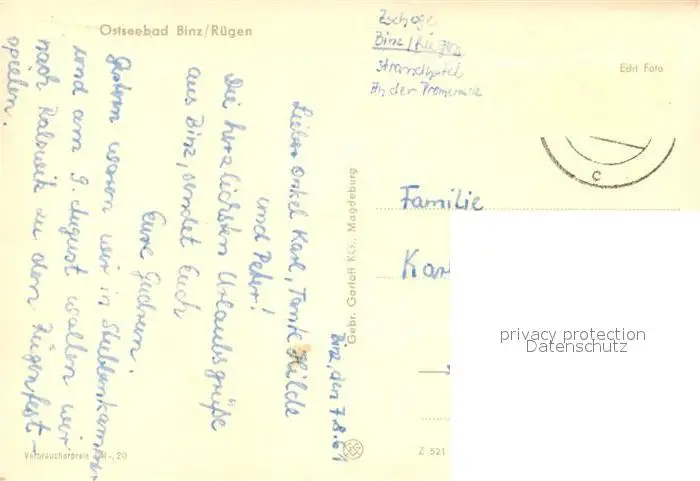 Ostseebad Binz/Rügen
Zschoge
Binz/Rügen
Strandhotel
An der Promenade
Echt Foto
C
Binz, den 7.8.61
Lieber Onkel Karl, Tante Hilde
und Peter!
Die herzlichsten Urlaubsgrüße
aus Binz, sendet Euch
Eure Gudrun!
Gestern waren wir in Stubbenkammer
und am 9. August wollen wir
nach Ralswik zu den Rügenfest-
spielen.
Gebr. Garloff KG., Magdeburg
Familie
Kar
Verbraucherpreis DM -,20
Z 521
privacy protection
Datenschutz